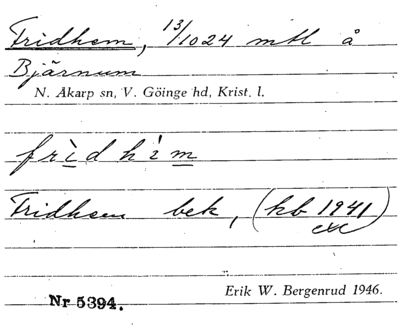 Fridhem, 13/1024 mtl å
Bjärnum
N. Åkarp sn, V. Göinge hd, Krist. l.
frìd h ì m
Fridhem bek, (kb 1941)
exc
Nr 5394.
Erik W. Bergenrud 1946.